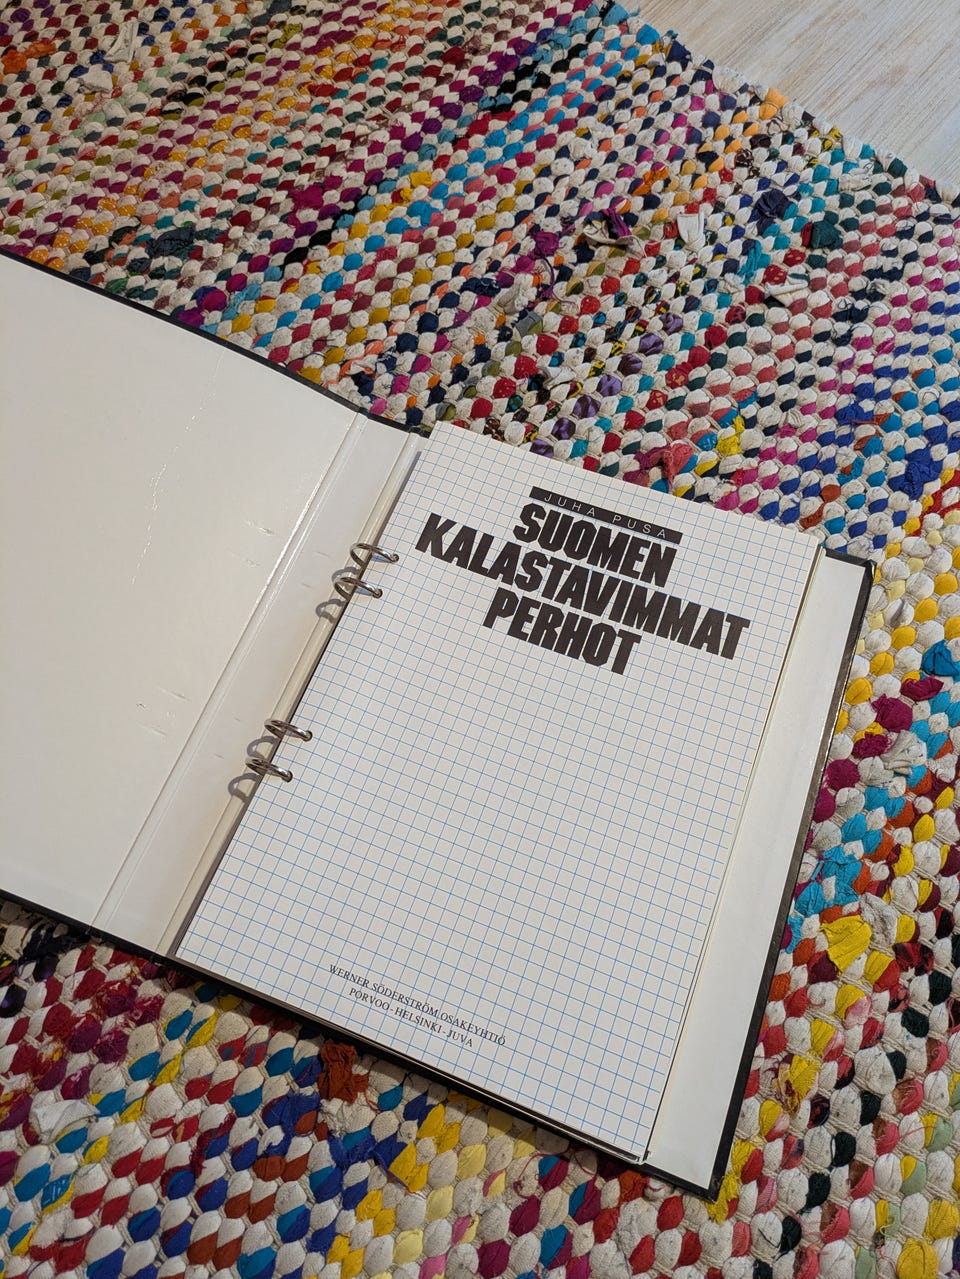 JUHA PUSA
SUOMEN
KALASTAVIMMAT
PERHOT
WERNER SÖDERSTRÖM OSAKEYHTIÖ
PORVOO-HELSINKI-JUVA